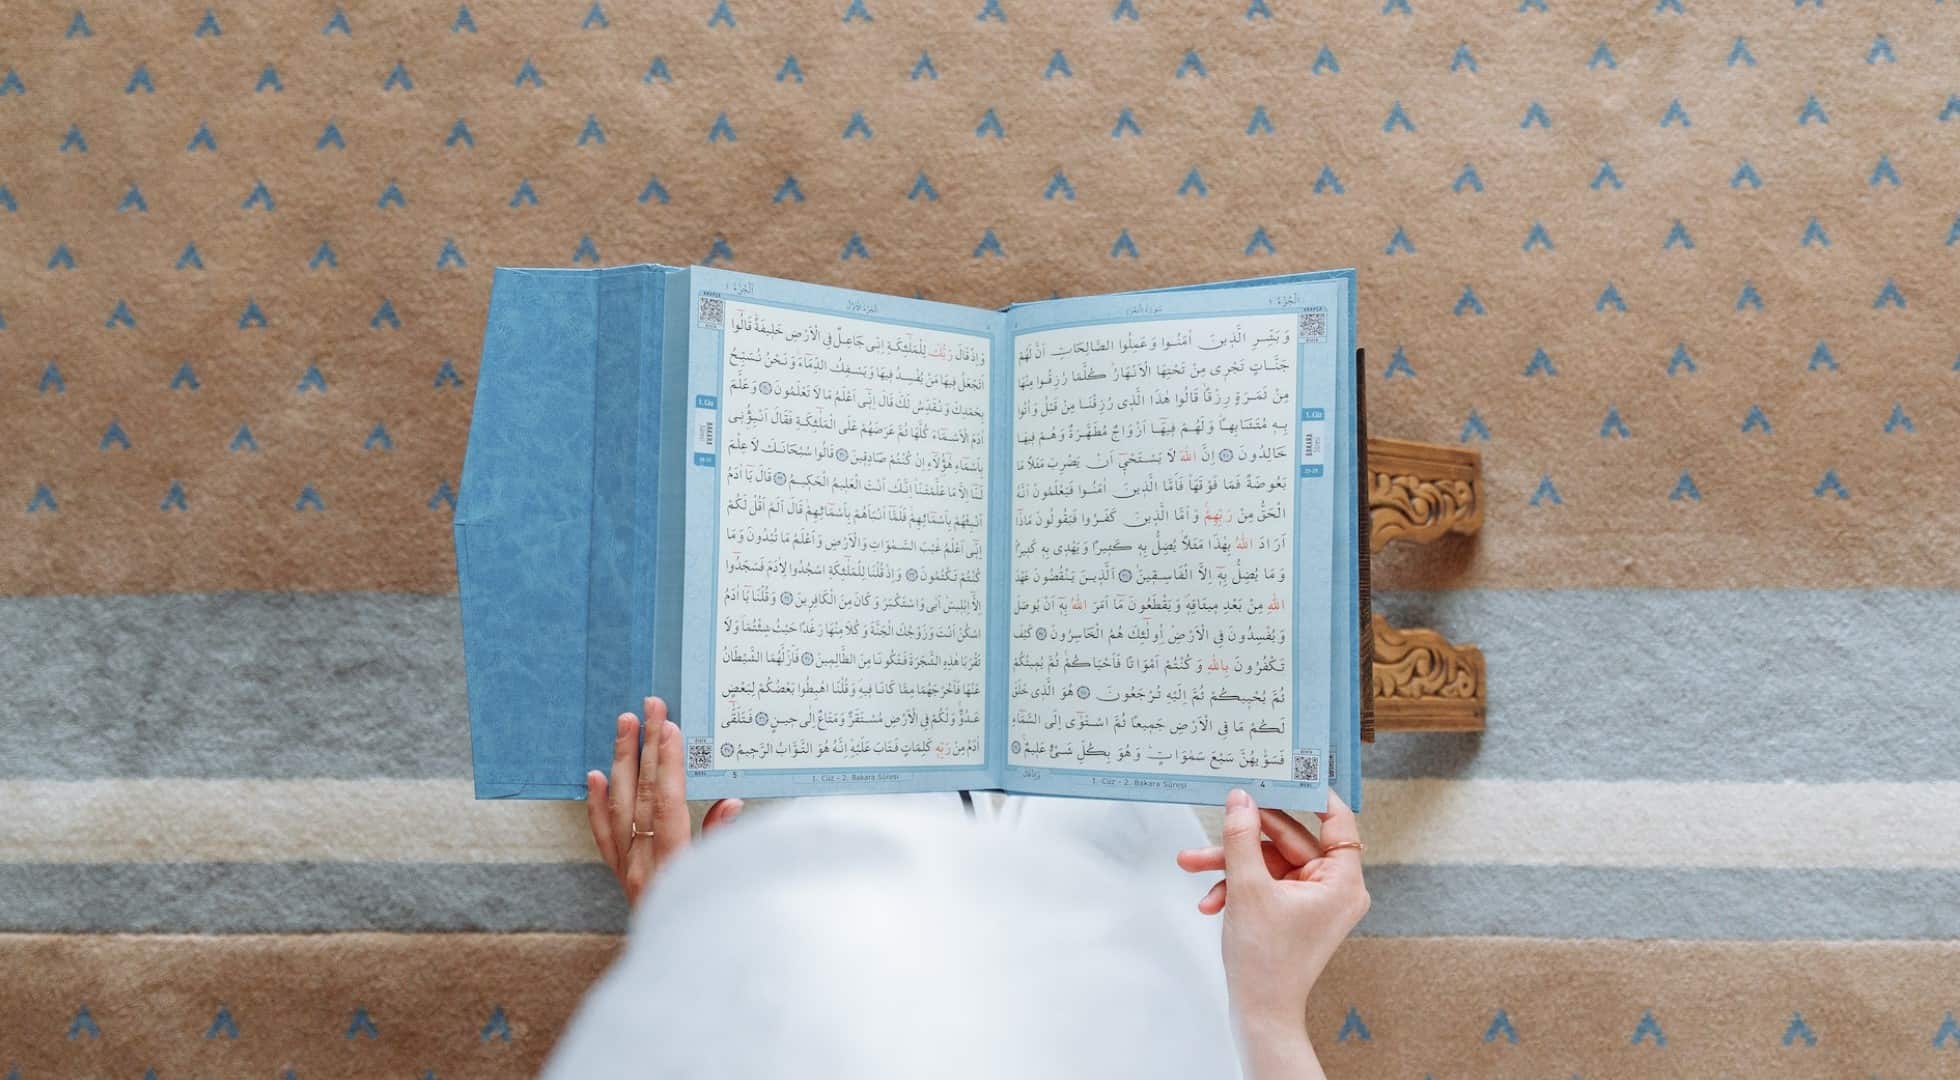 اَلْجُزْءُ ١
سُورَةُ الْبَقَرَةِ
وَبَشِّرِ الَّذٖينَ اٰمَنُوا وَعَمِلُوا الصَّالِحَاتِ اَنَّ لَهُمْ
جَنَّاتٍ تَجْرٖى مِنْ تَحْتِهَا الْاَنْهَارُ كُلَّمَا رُزِقُوا مِنْهَا
مِنْ ثَمَرَةٍ رِزْقًا قَالُوا هٰذَا الَّذٖى رُزِقْنَا مِنْ قَبْلُ وَاُتُوا
بِهٖ مُتَشَابِهًا وَلَهُمْ فٖيهَا اَزْوَاجٌ مُطَهَّرَةٌ وَهُمْ فٖيهَا
خَالِدُونَ ﴿٢٥﴾ اِنَّ اللّٰهَ لَا يَسْتَحْيٖى اَنْ يَضْرِبَ مَثَلًا مَا
بَعُوضَةً فَمَا فَوْقَهَا فَاَمَّا الَّذٖينَ اٰمَنُوا فَيَعْلَمُونَ اَنَّهُ
الْحَقُّ مِنْ رَبِّهِمْ وَاَمَّا الَّذٖينَ كَفَرُوا فَيَقُولُونَ مَاذَا
اَرَادَ اللّٰهُ بِهٰذَا مَثَلًا يُضِلُّ بِهٖ كَثٖيرًا وَيَهْدٖى بِهٖ كَثٖيرًا
وَمَا يُضِلُّ بِهٖ اِلَّا الْفَاسِقٖينَ ﴿٢٦﴾ اَلَّذٖينَ يَنْقُضُونَ عَهْدَ
اللّٰهِ مِنْ بَعْدِ مٖيثَاقِهٖ وَيَقْطَعُونَ مَا اَمَرَ اللّٰهُ بِهٖ اَنْ يُوصَلَ
وَيُفْسِدُونَ فِى الْاَرْضِ اُولٰئِكَ هُمُ الْخَاسِرُونَ ﴿٢٧﴾ كَيْفَ
تَكْفُرُونَ بِاللّٰهِ وَكُنْتُمْ اَمْوَاتًا فَاَحْيَاكُمْ ثُمَّ يُمٖيتُكُمْ
ثُمَّ يُحْيٖيكُمْ ثُمَّ اِلَيْهِ تُرْجَعُونَ ﴿٢٨﴾ هُوَ الَّذٖى خَلَقَ
لَكُمْ مَا فِى الْاَرْضِ جَمٖيعًا ثُمَّ اسْتَوٰى اِلَى السَّمَاءِ
فَسَوّٰيهُنَّ سَبْعَ سَمٰوَاتٍ وَهُوَ بِكُلِّ شَىْءٍ عَلٖيمٌ ﴿٢٩﴾
1. Cüz
BAKARA
Sûresi
25-29
1. Cüz - 2. Bakara Sûresi
4
اَلْجُزْءُ ١
اَلْجُزْءُ الْاَوَّلُ
وَاِذْ قَالَ رَبُّكَ لِلْمَلٰئِكَةِ اِنّٖى جَاعِلٌ فِى الْاَرْضِ خَلٖيفَةً قَالُوا
اَتَجْعَلُ فٖيهَا مَنْ يُفْسِدُ فٖيهَا وَيَسْفِكُ الدِّمَاءَ وَنَحْنُ نُسَبِّحُ
بِحَمْدِكَ وَنُقَدِّسُ لَكَ قَالَ اِنّٖى اَعْلَمُ مَا لَا تَعْلَمُونَ ﴿٣٠﴾ وَعَلَّمَ
اٰدَمَ الْاَسْمَاءَ كُلَّهَا ثُمَّ عَرَضَهُمْ عَلَى الْمَلٰئِكَةِ فَقَالَ اَنْبِؤُنٖى
بِاَسْمَاءِ هٰؤُلَاءِ اِنْ كُنْتُمْ صَادِقٖينَ ﴿٣١﴾ قَالُوا سُبْحَانَكَ لَا عِلْمَ
لَنَا اِلَّا مَا عَلَّمْتَنَا اِنَّكَ اَنْتَ الْعَلٖيمُ الْحَكٖيمُ ﴿٣٢﴾ قَالَ يَا اٰدَمُ
اَنْبِئْهُمْ بِاَسْمَائِهِمْ فَلَمَّا اَنْبَاَهُمْ بِاَسْمَائِهِمْ قَالَ اَلَمْ اَقُلْ لَكُمْ
اِنّٖى اَعْلَمُ غَيْبَ السَّمٰوَاتِ وَالْاَرْضِ وَاَعْلَمُ مَا تُبْدُونَ وَمَا
كُنْتُمْ تَكْتُمُونَ ﴿٣٣﴾ وَاِذْ قُلْنَا لِلْمَلٰئِكَةِ اسْجُدُوا لِاٰدَمَ فَسَجَدُوا
اِلَّا اِبْلٖيسَ اَبٰى وَاسْتَكْبَرَ وَكَانَ مِنَ الْكَافِرٖينَ ﴿٣٤﴾ وَقُلْنَا يَا اٰدَمُ
اسْكُنْ اَنْتَ وَزَوْجُكَ الْجَنَّةَ وَكُلَا مِنْهَا رَغَدًا حَيْثُ شِئْتُمَا وَلَا
تَقْرَبَا هٰذِهِ الشَّجَرَةَ فَتَكُونَا مِنَ الظَّالِمٖينَ ﴿٣٥﴾ فَاَزَلَّهُمَا الشَّيْطَانُ
عَنْهَا فَاَخْرَجَهُمَا مِمَّا كَانَا فٖيهِ وَقُلْنَا اهْبِطُوا بَعْضُكُمْ لِبَعْضٍ
عَدُوٌّ وَلَكُمْ فِى الْاَرْضِ مُسْتَقَرٌّ وَمَتَاعٌ اِلٰى حٖينٍ ﴿٣٦﴾ فَتَلَقّٰى
اٰدَمُ مِنْ رَبِّهٖ كَلِمَاتٍ فَتَابَ عَلَيْهِ اِنَّهُ هُوَ التَّوَّابُ الرَّحٖيمُ ﴿٣٧﴾
1. Cüz
BAKARA
Sûresi
1. Cüz - 2. Bakara Sûresi
5